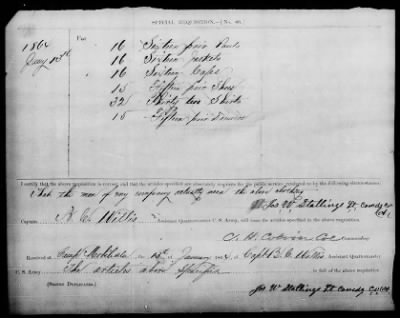 SPECIAL REQUISITION.—[No. 40.
1864 For
Jany 13th 16 Sixteen pair Pants
16 Sixteen Jackets
16 Sixteen Caps
15 Fifteen pair Shoes
32 Thirty two Shirts
15 Fifteen pair Drawers
I certify that the above requisition is correct, and that the articles specified are absolutely requisite for the public service, rendered so by the following circumstances:
that the men of my company actually need the above clothing
Jos W Stallings Lt Comdg Co
Captain Assistant Quartermaster C. S. Army, will issue the articles specified in the above requisition.
Commanding
Received at Camp of January 1864, of Capt B. C. Assistant Quartermaster
C. S. Army The articles above Specified in full of the above requisition.
(SIGNED DUPLICATES.) Jos W Stallings Lt Comdg Co